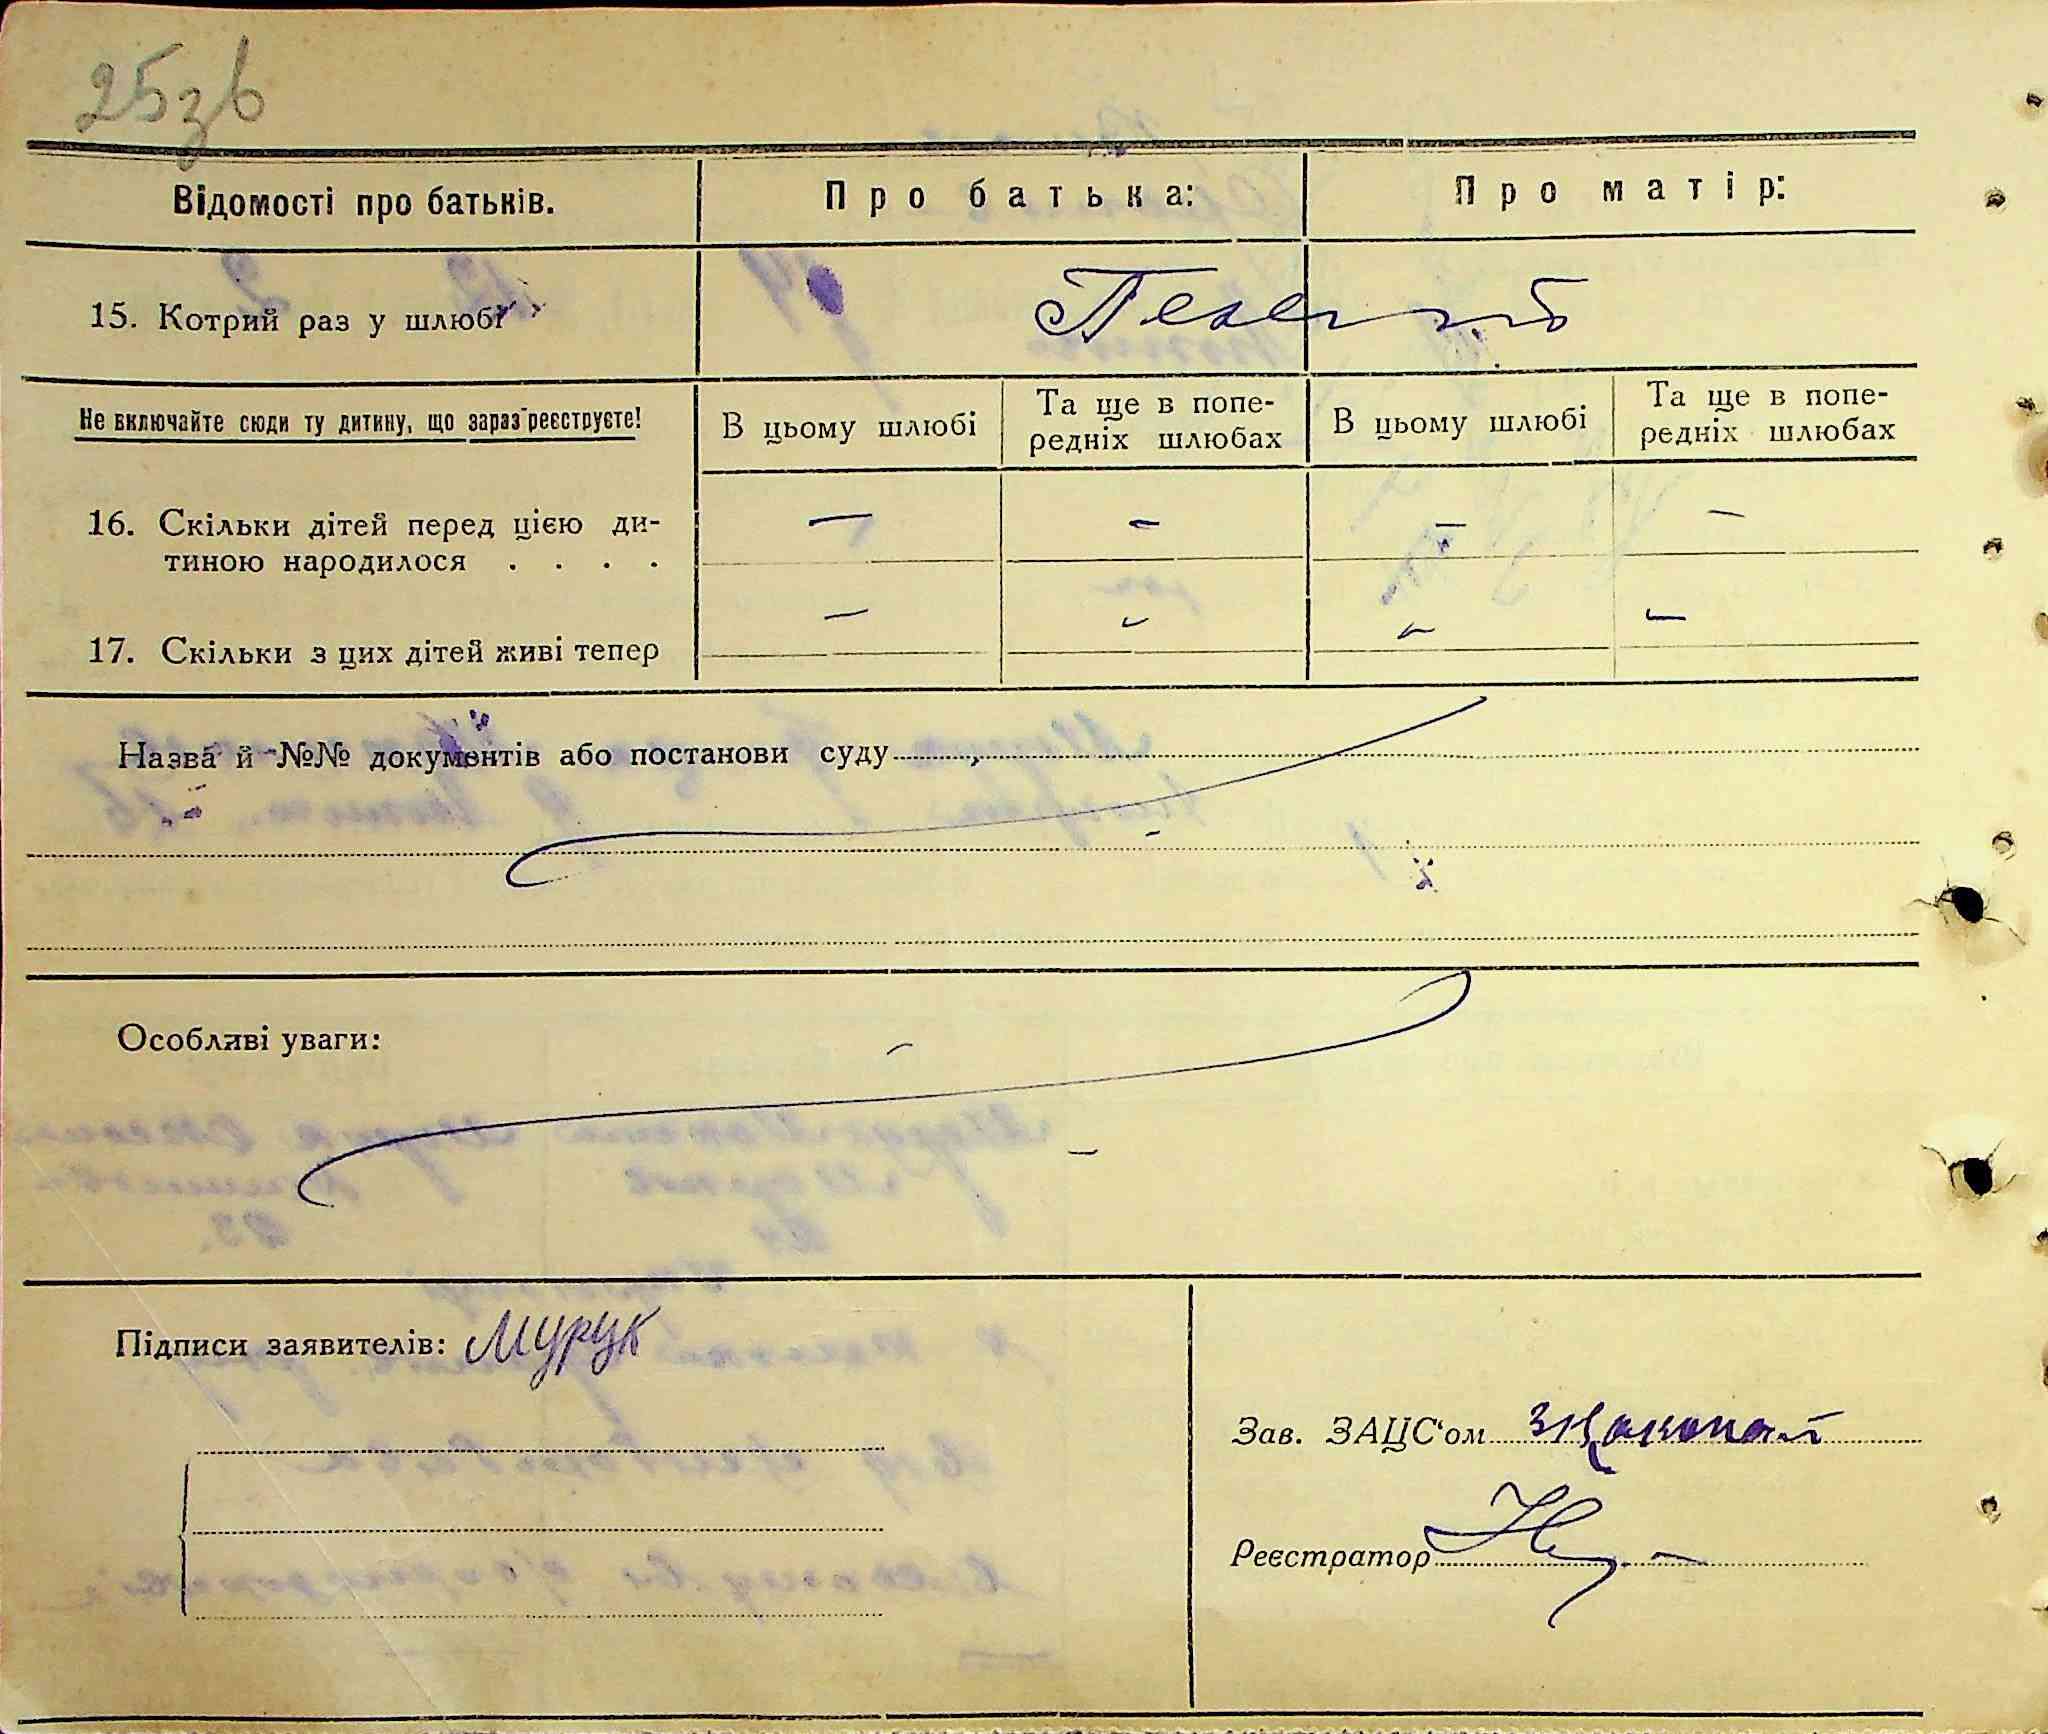 25зв
Відомості про батьків.
Про батька:
Про матір:
15. Котрий раз у шлюбі
Не включайте сюди ту дитину, що зараз реєструєте!
В цьому шлюбі
Та ще в попе-
редніх шлюбах
В цьому шлюбі
Та ще в попе-
редніх шлюбах
16. Скільки дітей перед цією ди-
тиною народилося . . . .
— — — —
17. Скільки з цих дітей живі тепер
— — — —
Назва й №№ документів або постанови суду
Особливі уваги:
Підписи заявителів: Мурук
Зав. ЗАЦС'ом
Реєстратор